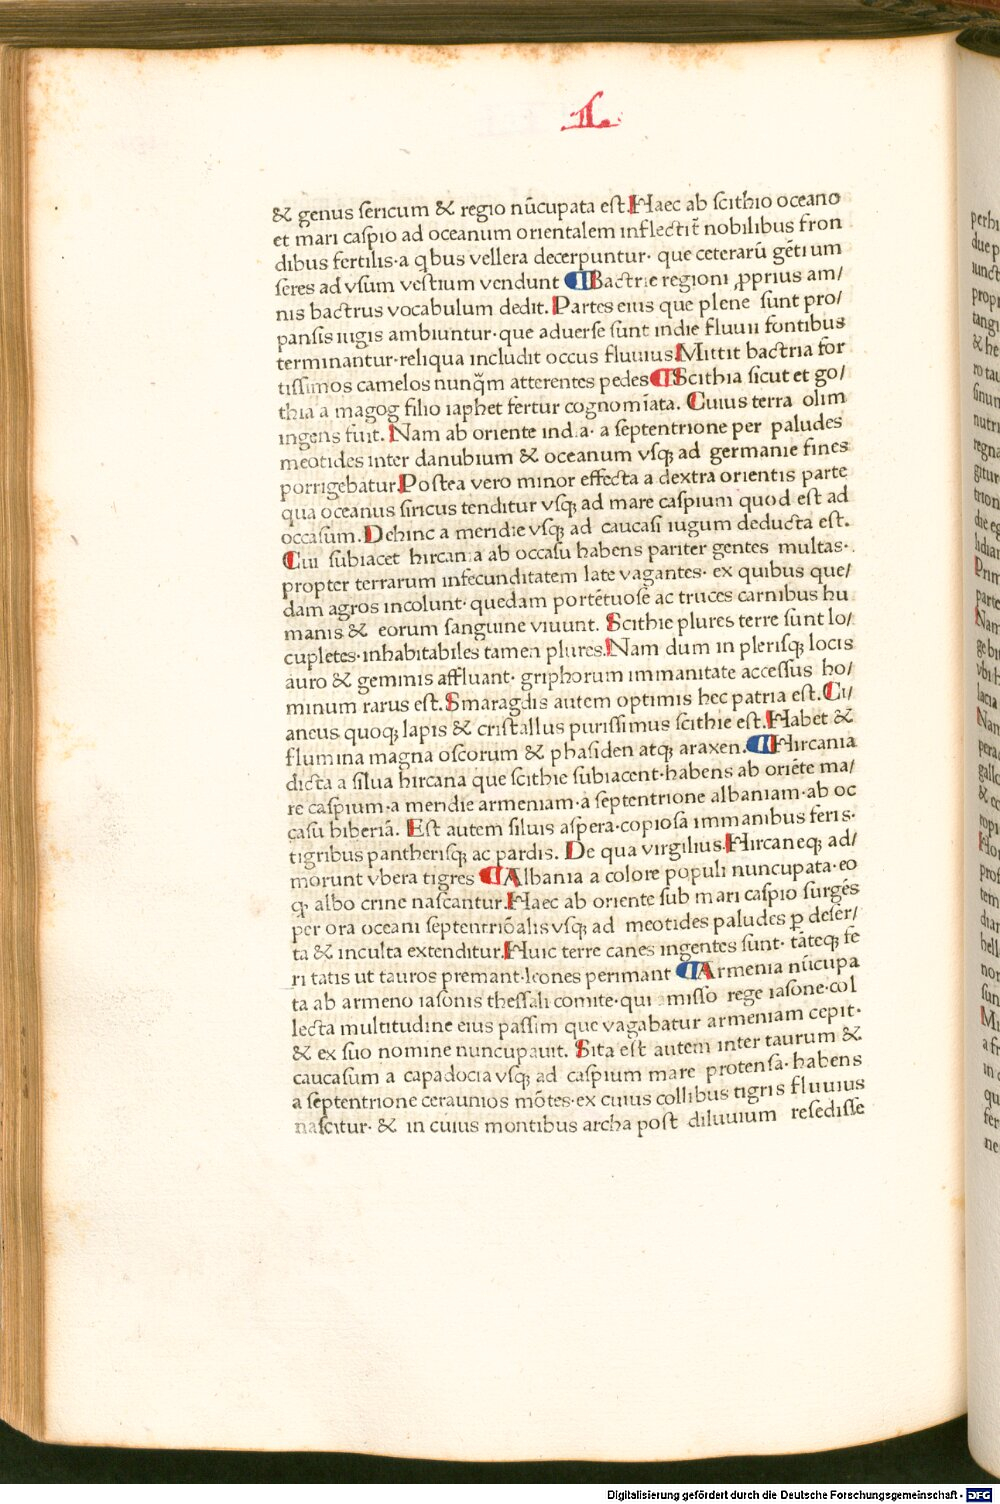 L.
& genus ſericum & regio nūcupata eſt. Haec ab ſcithio oceano
et mari caſpio ad oceanum orientalem inflectit̄ nobilibus fron
dibus fertilis·a qbus vellera decerpuntur· que ceterarū gētium
ſeres ad vſum veſtium vendunt ¶Bactrie regioni ꝓprius am/
nis bactrus vocabulum dedit. Partes eius que plene ſunt pro/
panſis iugis ambiuntur·que aduerſe ſunt indie fluuii fontibus
terminantur·reliqua includit occus fluuius. Mittit bactria for
tiſſimos camelos nunq̄m atterentes pedes ¶Scithia ſicut et go/
thia a magog filio iaphet fertur cognomīata. Cuius terra olim
ingens fuit. Nam ab oriente india· a ſeptentrione per paludes
meotides inter danubium & oceanum vſqꝫ ad germanie fines
porrigebatur. Poſtea vero minor effecta a dextra orientis parte
qua oceanus ſiricus tenditur vſqꝫ ad mare caſpium quod eſt ad
occaſum. Dehinc a meridie vſqꝫ ad caucaſi iugum deducta eſt.
Cui ſubiacet hircania ab occaſu habens pariter gentes multas·
propter terrarum infecunditatem late vagantes· ex quibus que/
dam agros incolunt· quedam portētuoſe ac truces carnibus hu
manis & eorum ſanguine viuunt. Scithie plures terre ſunt lo/
cupletes·inhabitabiles tamen plures. Nam dum in pleriſqꝫ locis
auro & gemmis affluant· griphorum immanitate acceſſus ho/
minum rarus eſt. Smaragdis autem optimis hec patria eſt. Ci/
aneus quoqꝫ lapis & criſtallus puriſſimus ſcithie eſt. Habet &
flumina magna oſcorum & phaſiden atqꝫ araxen. ¶Hircania
dicta a ſilua hircana que ſcithie ſubiacent·habens ab oriēte ma/
re caſpium·a meridie armeniam·a ſeptentrione albaniam·ab oc
caſu hiberiā. Eſt autem ſiluis aſpera·copioſa immanibus feris·
tigribus pantheriſqꝫ ac pardis. De qua virgilius. Hircaneqꝫ ad/
morunt vbera tigres ¶Albania a colore populi nuncupata·eo
qꝫ albo crine naſcantur. Haec ab oriente ſub mari caſpio ſurgēs
per ora oceani ſeptentriōalis vſqꝫ ad meotides paludes ꝑ deſer/
ta & inculta extenditur. Huic terre canes ingentes ſunt· tāteqꝫ fe
ri tatis ut tauros premant·leones perimant ¶Armenia nūcupa
ta ab armeno iaſonis theſſali comite·qui amiſſo rege iaſone·col
lecta multitudine eius paſſim que vagabatur armeniam cepit·
& ex ſuo nomine nuncupauit. Sita eſt autem inter taurum &
caucaſum a capadocia vſqꝫ ad caſpium mare protenſa· habens
a ſeptentrione ceraunios mōtes·ex cuius collibus tigris fluuius
naſcitur· & in cuius montibus archa poſt diluuium reſediſſe
Digitalisierung gefördert durch die Deutsche Forschungsgemeinschaft - DFG